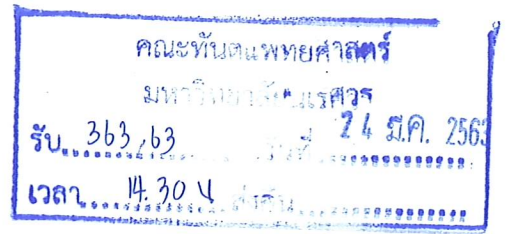 คณะทันตแพทยศาสตร์
มหาวิทยาลัยนเรศวร
รับ 363/63 วันที่ 24 มี.ค. 2563
เวลา 14.30 น